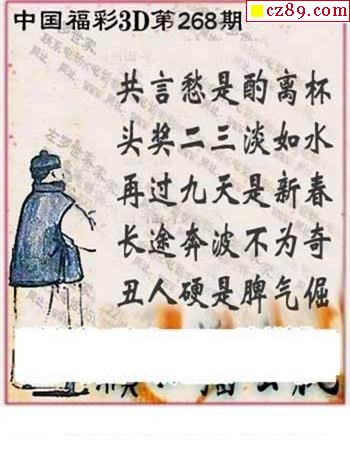 cz89.com
中国福彩3D第268期
共言愁是酌离杯
头奖二三淡如水
再过九天是新春
长途奔波不为奇
丑人硬是脾气倔